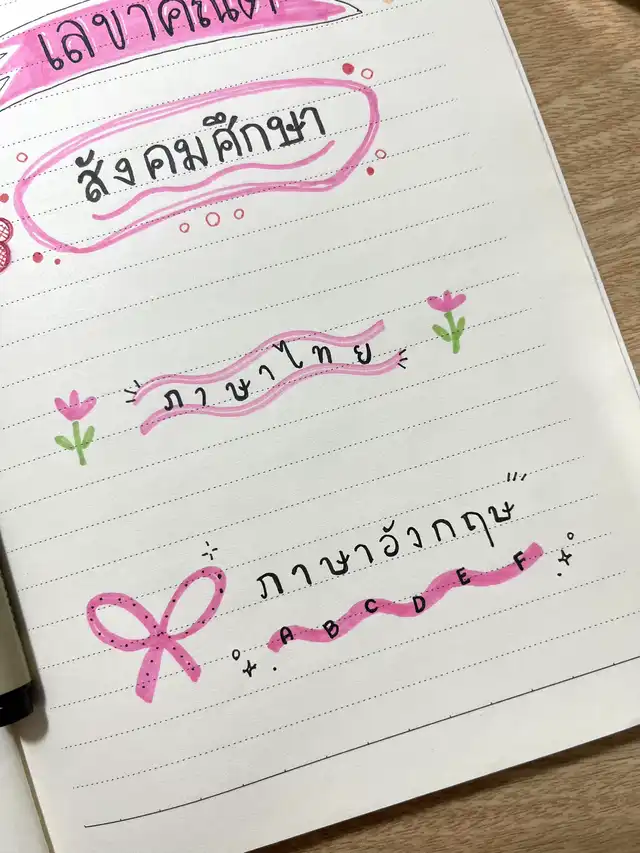 เลขาคณิต
สังคมศึกษา
ภาษาไทย
ภาษาอังกฤษ
A B C D E F